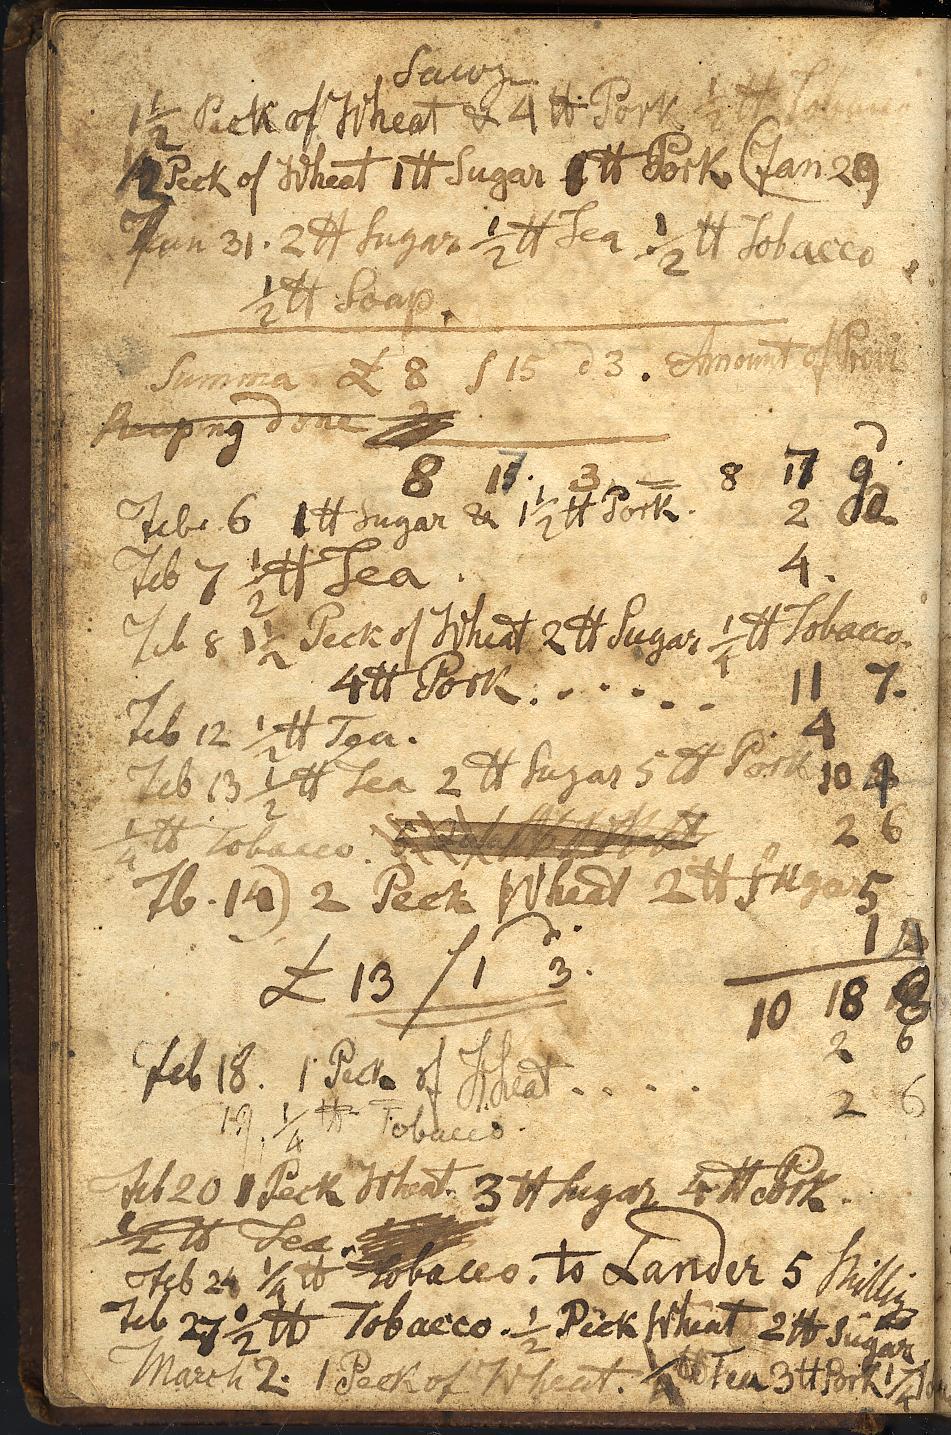 1½ Peck of Wheat & 4 ℔ Pork ½ ℔
½ Peck of Wheat 1℔ Sugar 1℔ Pork (Jan 29
Jan 31. 2℔ Sugar ½℔ Tea ½℔ Tobacco
½℔ Soap.
Summa £ 8 ſ 15 d 3. Amount of
done
8 15. 3 = 8 17 9
Feb. 6 1℔ Sugar & 1½℔ Pork. 2
Feb 7 ½℔ Tea. 4.
Feb 8 1½ Peck of Wheat 2℔ Sugar ¼℔ Tobacco.
4℔ Pork. . . . . . 11 7.
Feb 12 ½℔ Tea. 4
Feb 13 ½℔ Tea 2℔ Sugar 5℔ Pork 10 4
¼℔ Tobacco. 2 6
Fb. 14) 2 Peck Wheat 2℔ Sugar 5
1
£ 13 / 1 3.
10 18 8
2 6
Feb 18. 1 Peck of Wheat . . . .
2 6
19. ¼ ℔ Tobacco.
Feb 20 1 Peck Wheat. 3℔ Sugar 4℔ Pork.
½ ℔ Tea.
Feb 24 ¼ ℔ Tobacco. to Lander 5 Shillin
Feb 27 ½ ℔ Tobacco. ½ Peck Wheat 2℔ Sugar
March 2. 1 Peck of Wheat. ¼ ℔ Tea 3℔ Pork ¼